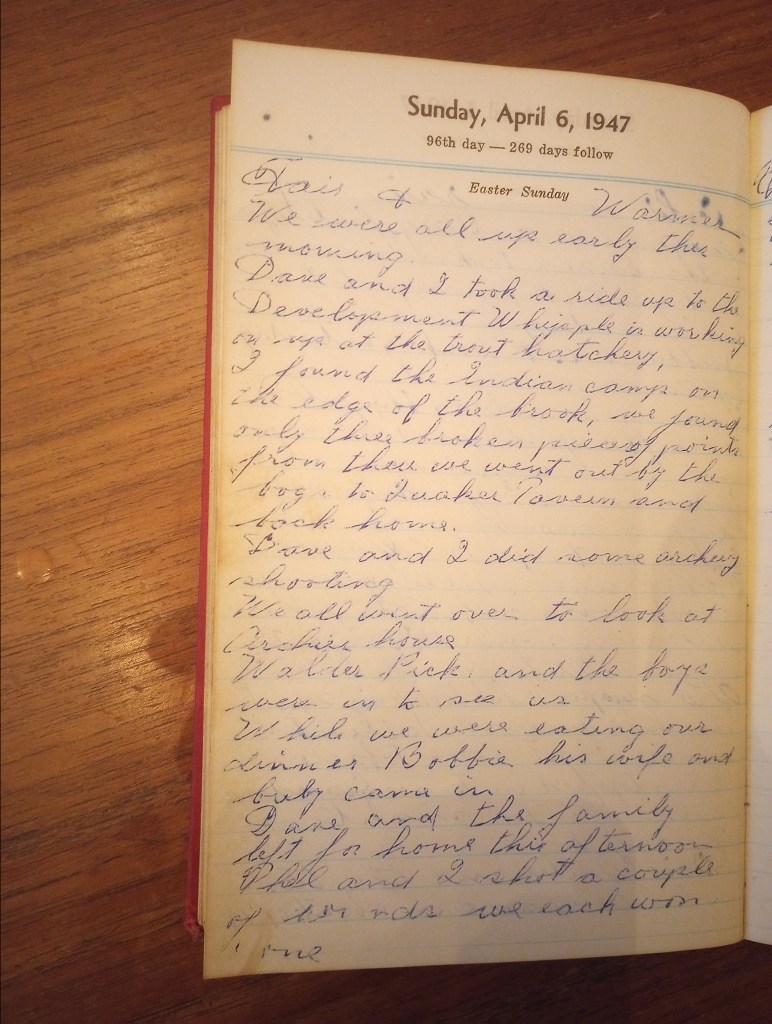 Sunday, April 6, 1947
96th day — 269 days follow
Easter Sunday
Fair & Warmer
We were all up early this
morning.
Dave and I took a ride up to the
Development Whipple is working
on up at the trout hatchery,
I found the Indian camp on
the edge of the brook, we found
only three broken pieces of points
from there we went out by the
bogs to Quaker Tavern and
back home.
Dave and I did some archery
shooting
We all went over to look at
Archies house
Walder Pick. and the boys
were in to see us
While we were eating our
dinner Bobbie his wife and
baby came in
Dave and the family
left for home this afternoon
Phil and I shot a couple
of rounds we each won
one